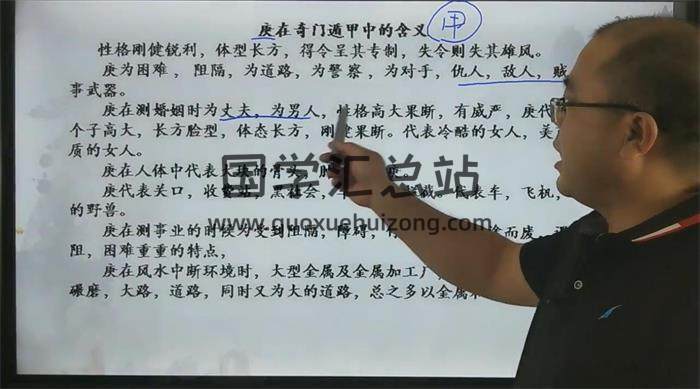 庚在奇门遁甲中的含义 甲
性格刚健锐利，体型长方，得令呈其专制，失令则失其雄风。
庚为困难，阻隔，为道路，为警察，为对手，仇人，敌人，贼
事武器。
庚在测婚姻时为丈夫，为男人，性格高大果断，有威严，庚代
个子高大，长方脸型，体态长方，刚健果断。代表冷酷的女人，美
质的女人。
庚在人体中代表大块的骨头，
庚代表关口，收费站，黑社会，车 代表车，飞机，
的野兽。
庚在测事业的时候为受到阻隔，障碍，有 途而废，
阻，困难重重的特点，
庚在风水中断环境时，大型金属及金属加工厂，
碾磨，大路，道路，同时又为大的道路，总之多以金属
国学汇总站
www.guoxuehuizong.com